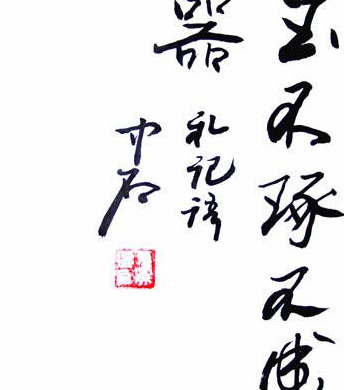 玉不琢不成
器
礼记语
中石